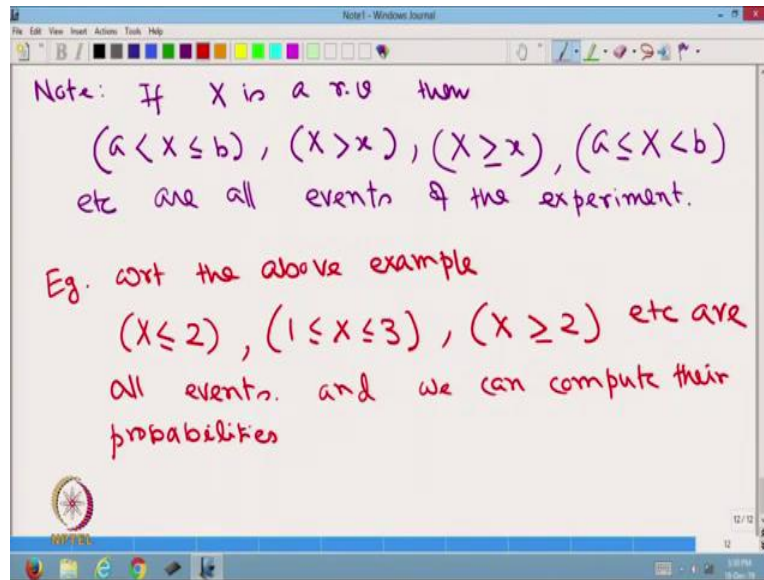 Note1 - Windows Journal
File Edit View Insert Actions Tools Help
Note: If X is a r.v then
(a < X ≤ b), (X > x), (X ≥ x), (a ≤ X < b)
etc are all events of the experiment.
Eg. wrt the above example
(X ≤ 2), (1 ≤ X ≤ 3), (X ≥ 2) etc are
all events. and we can compute their
probabilities
NPTEL
12/12
12